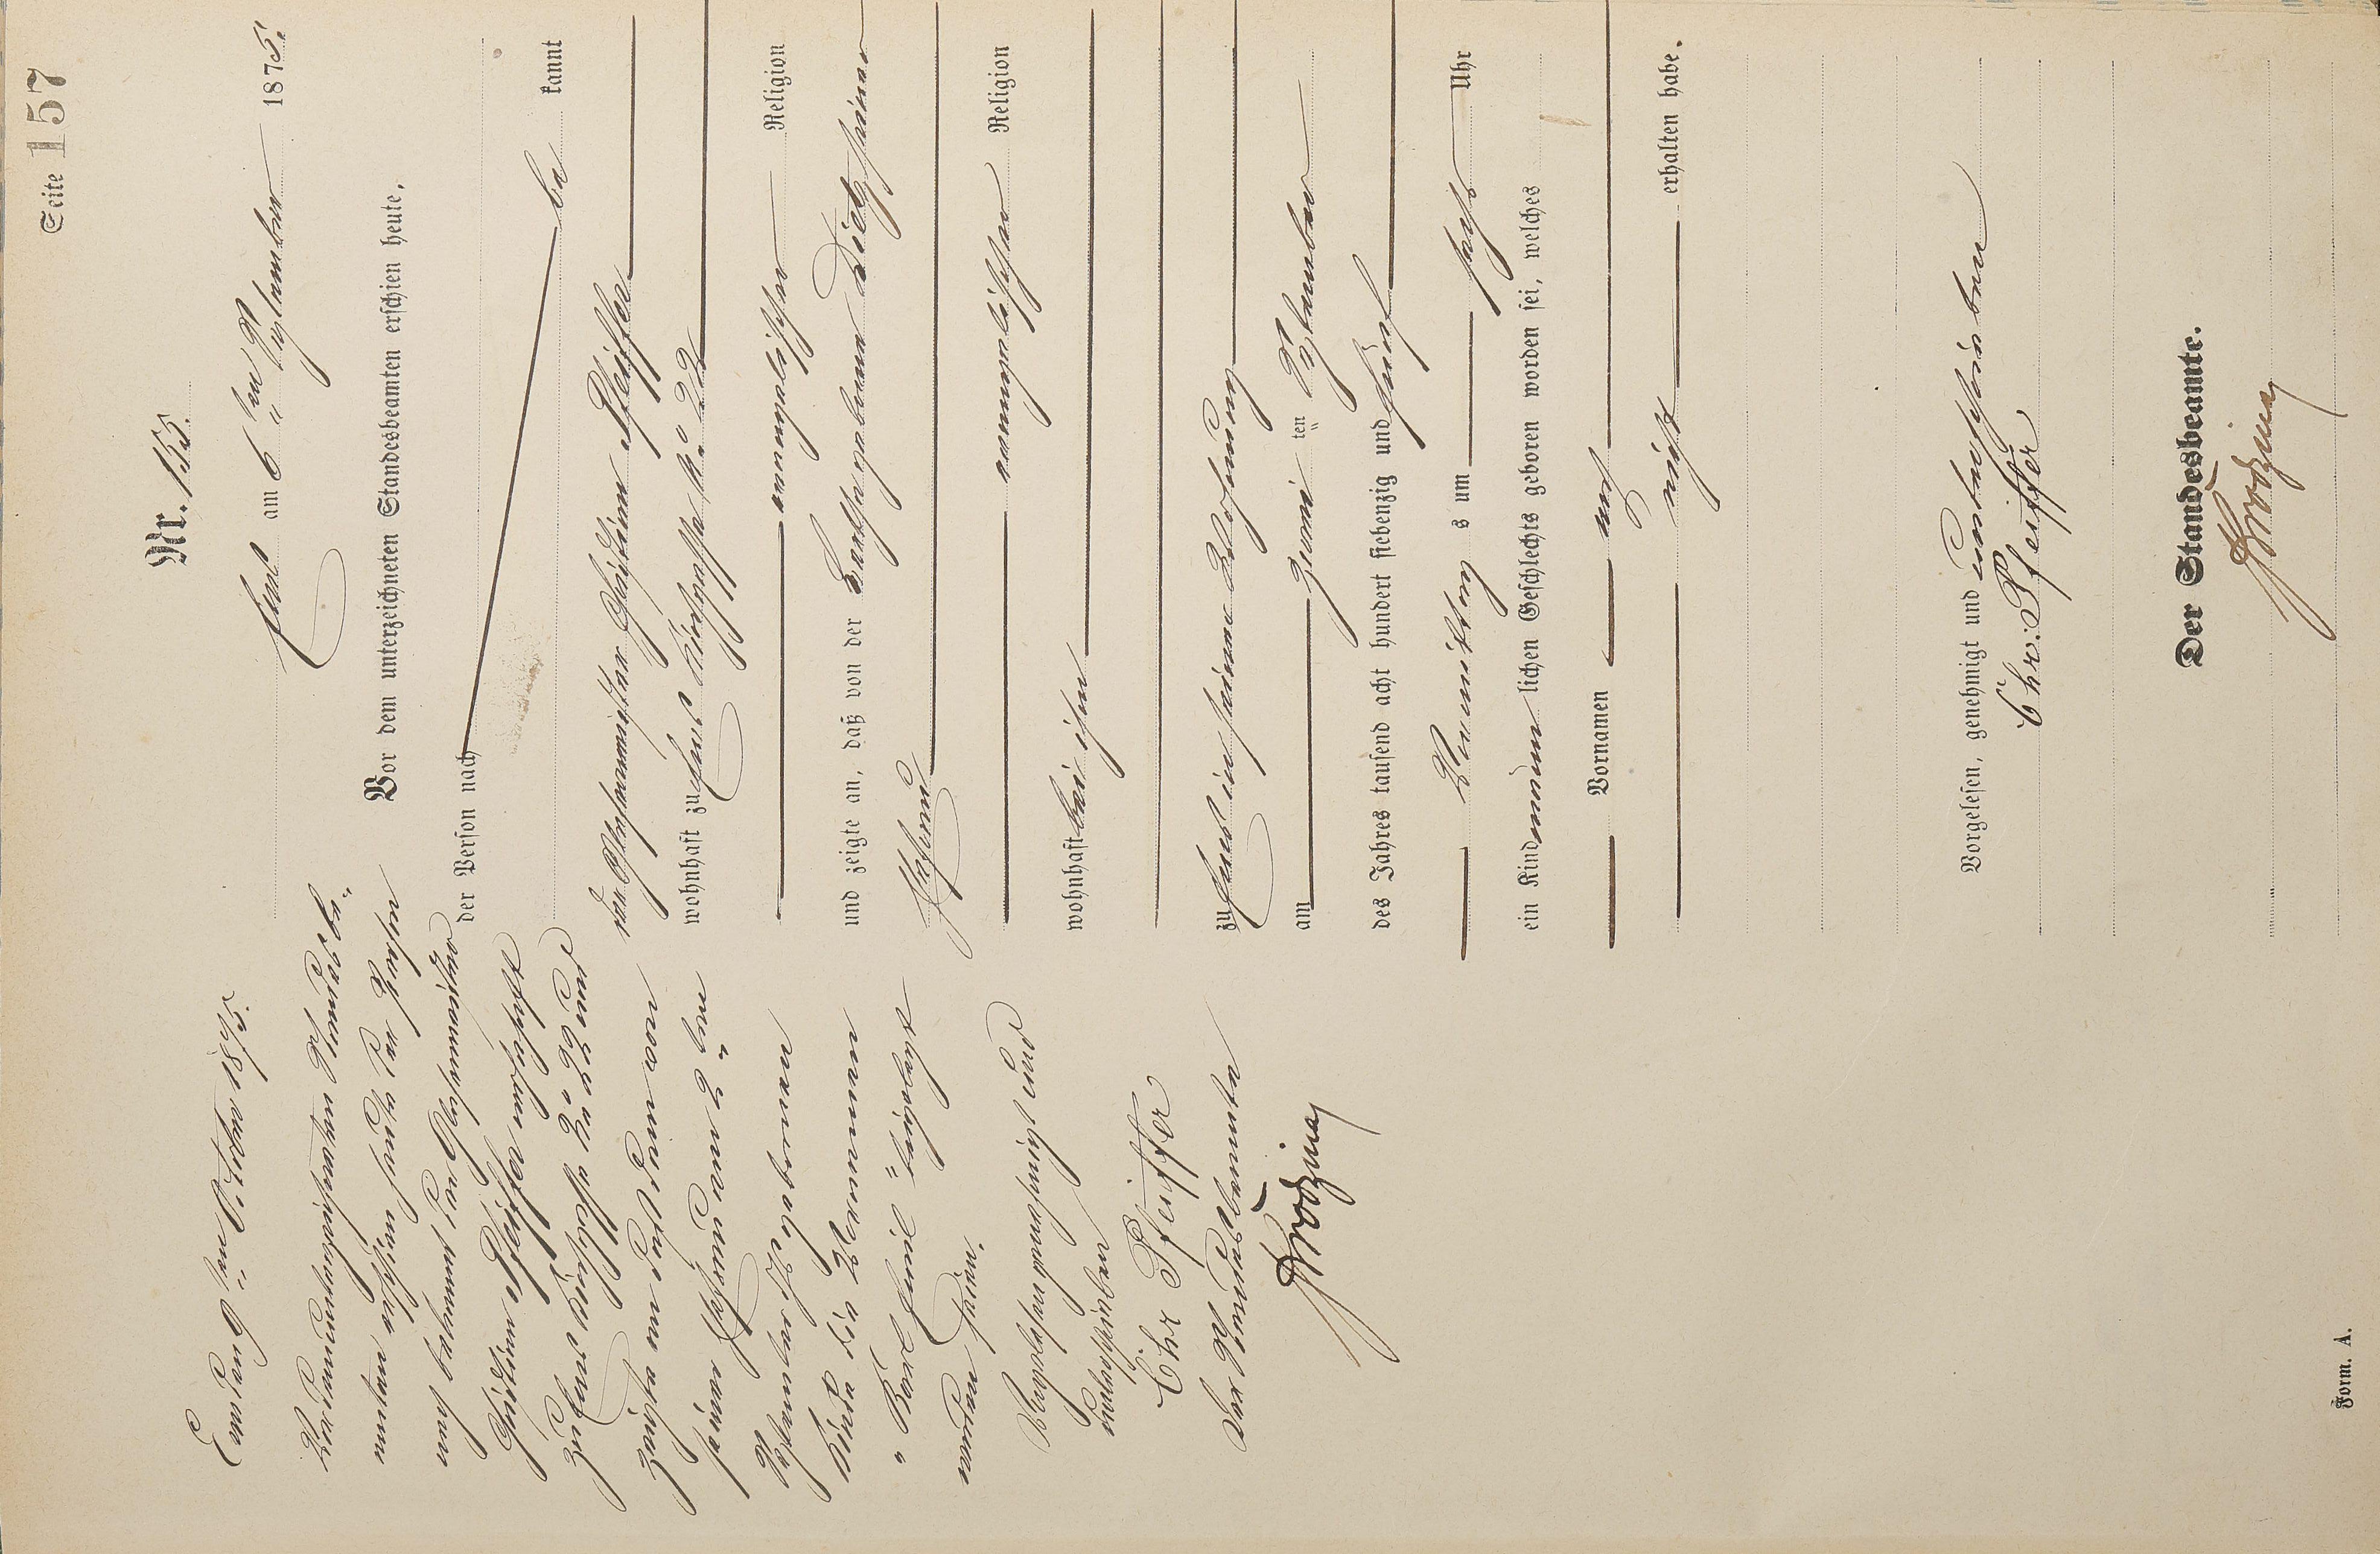 Seite 157
Nr. 155.
Ems am 6ten September 1875.
Vor dem unterzeichneten Standesbeamten erschien heute,
der Person nach
be kannt
der Schuhmachermeister Christian Pfeiffer
wohnhaft zu Ems Kirchgasse No 22
evangelischer Religion
und zeigte an, daß von der geborenen Dietz seiner
Ehefrau
evangelischer Religion
wohnhaft bei ihm
zu Ems in seiner Wohnung
am zweiten September
des Jahres tausend acht hundert siebenzig und fünf
Vormittags um sechs Uhr
ein Kind männlichen Geschlechts geboren worden sei, welches
Vornamen noch
nicht erhalten habe.
Vorgelesen, genehmigt und unterschrieben
Chr. Pfeiffer
Der Standesbeamte.
Ems den 9ten October 1875.
Vor dem unterzeichneten Standesbe-
amten erschien heute der Person
nach bekannt der
Christian Pfeiffer wohnhaft
zu Ems Kirchgasse No 22 und
zeigte an daß dem von
seiner Ehefrau am 2ten
September geborenen
Kinde die Vornamen
"Karl Emil" beigelegt
worden seien.
Vorgelesen genehmigt und
unterschrieben
Chr Pfeiffer
Der Standesbeamte
Form. A.